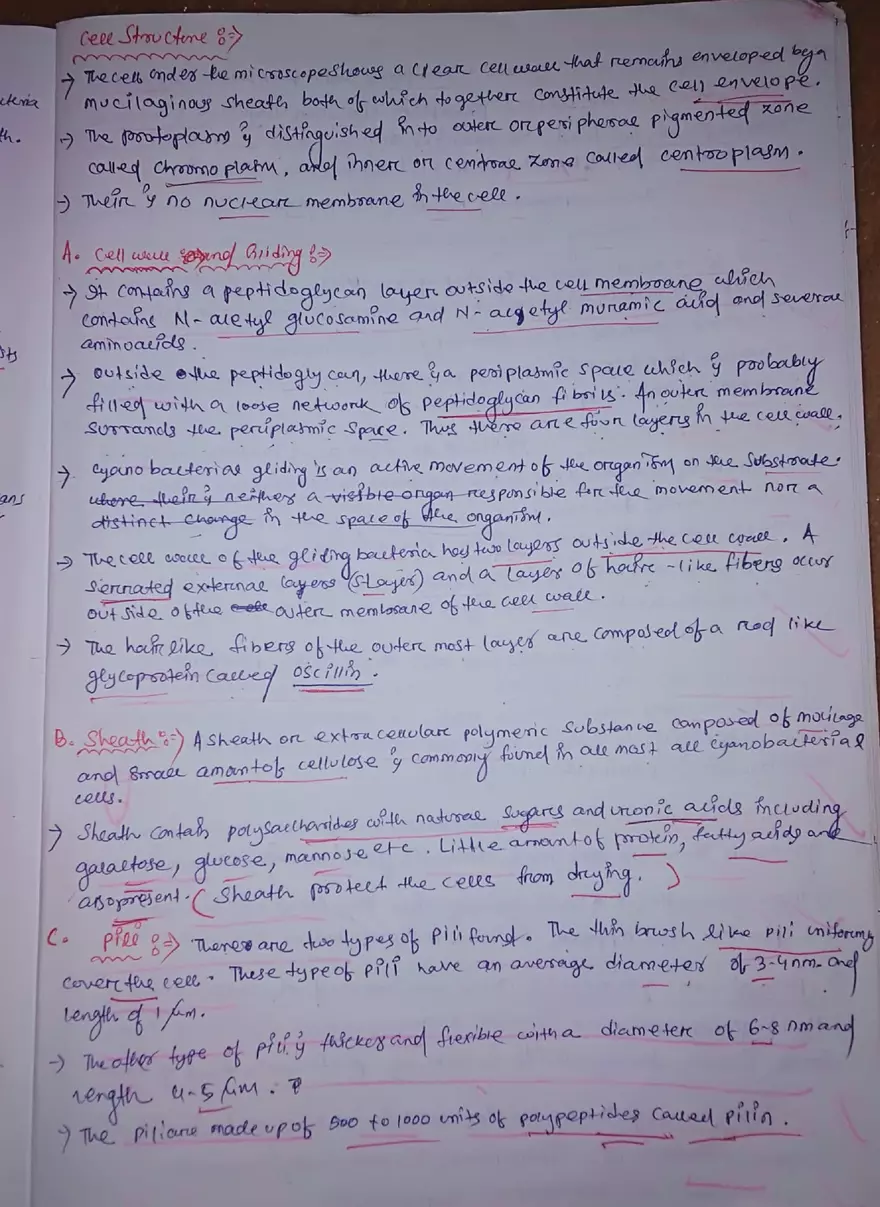 cteria
th.
sts
ans
Cell Structure :⇒
→ The cell under the microscope shows a clear cell wall that remains enveloped by a
mucilaginous sheath both of which together constitute the cell envelope.
→ The protoplasm is distinguished into outer or peripheral pigmented zone
called chromoplasm, and inner or central zone called centroplasm.
→ Their is no nuclear membrane in the cell.
A. Cell wall and Gliding :⇒
→ It contains a peptidoglycan layer outside the cell membrane which
contains N-acetyl glucosamine and N-acetyl muramic acid and several
aminoacids.
→ outside the peptidoglycan, there is a periplasmic space which is probably
filled with a loose network of peptidoglycan fibrils. An outer membrane
surrands the periplasmic space. Thus there are four layers in the cell wall.
→ cyanobacterial gliding is an active movement of the organism on the substrate.
where their is neither a visible organ responsible for the movement nor a
distinct change in the space of the organism.
→ The cell wall of the gliding bacteria has two layers outside the cell wall. A
serrated external layers (S-layer) and a layer of hair-like fibers occur
outside of the outer membrane of the cell wall.
→ The hair like fibers of the outer most layer are composed of a rod like
glycoprotein called oscillin.
B. Sheath :⇒ A sheath or extracellular polymeric substance composed of mucilage
and small amant of cellulose is commonly found in all most all cyanobacterial
cells.
→ Sheath contain polysaccharides with natural sugars and uronic acids including
galactose, glucose, mannose etc. Little amant of protein, fatty acids are
also present. (Sheath protect the cells from drying.)
C. Pili :⇒ There are two types of pili found. The thin brush like pili uniformly
cover the cell. These type of pili have an average diameter of 3-4 nm. and
length of 1 μm.
→ The other type of pili is thicker and flexible with a diameter of 6-8 nm and
length 4-5 μm.
→ The pili are made up of 500 to 1000 units of polypeptides called pilin.